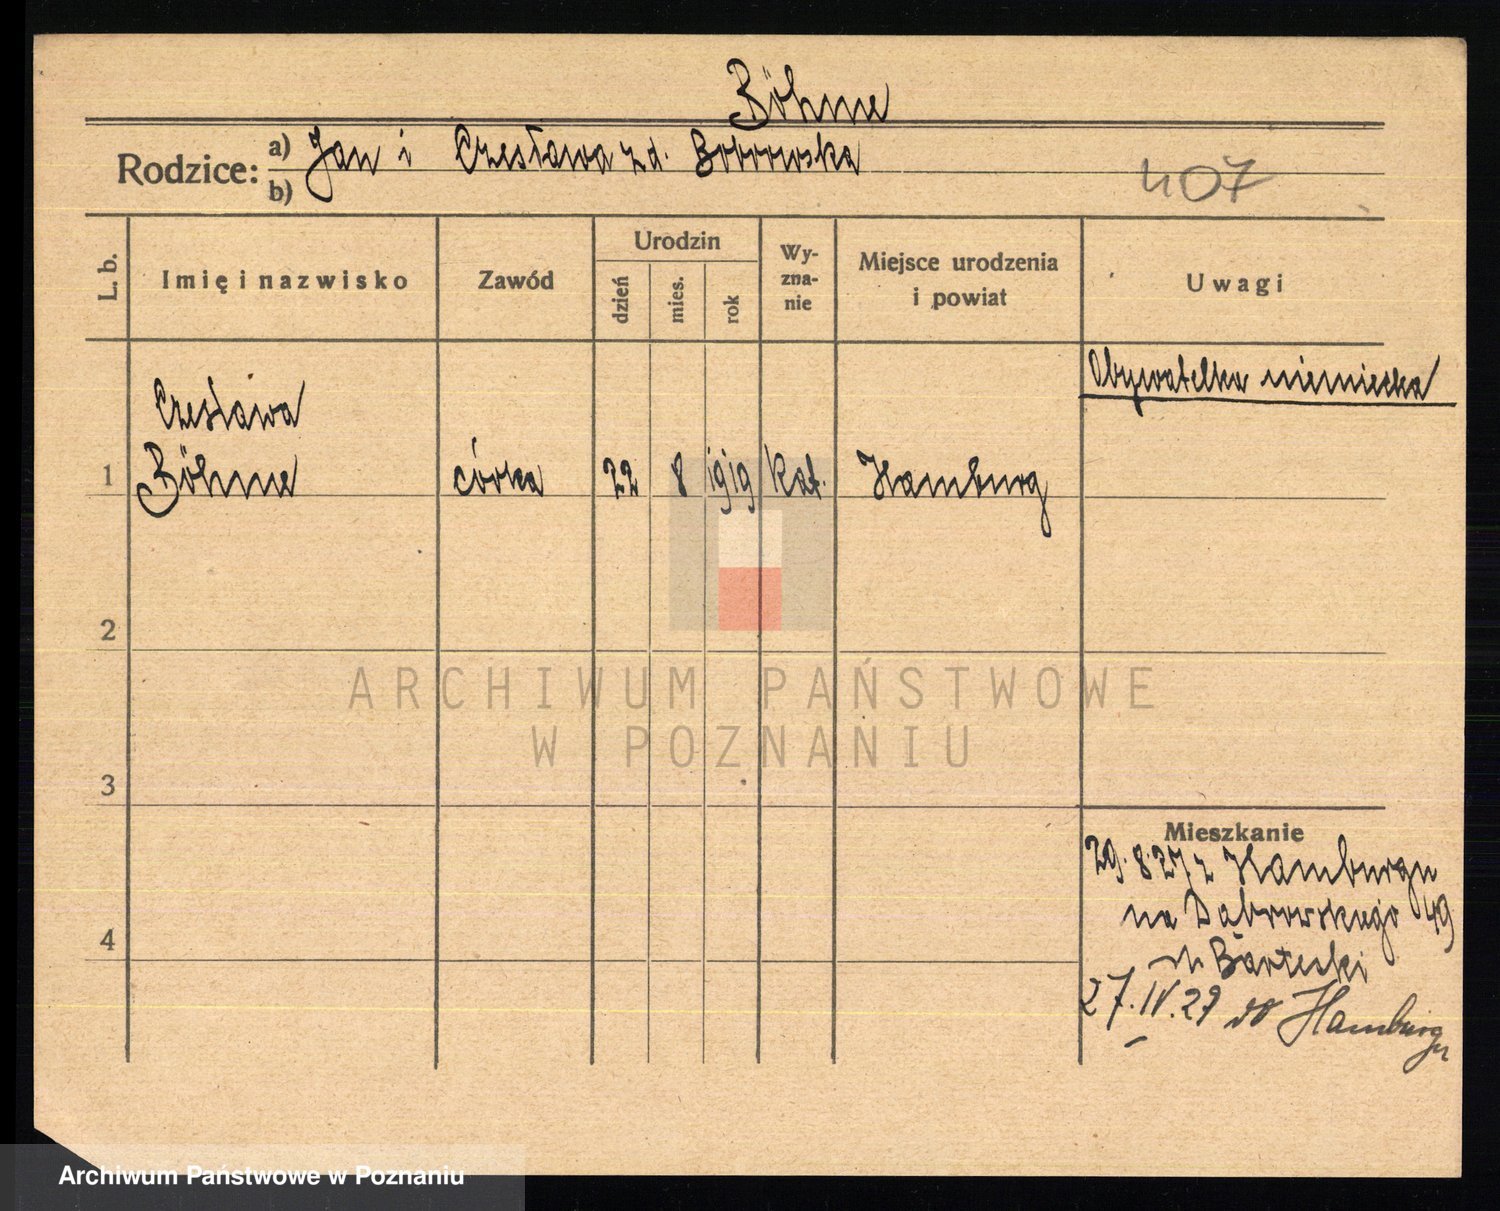 Böhme
Rodzice: a) Jan i Czesława z d. Bobrowska
b)
407
L. b.
Imię i nazwisko
Zawód
Urodzin
dzień
mies.
rok
Wy-
zna-
nie
Miejsce urodzenia
i powiat
Uwagi
Obywatelka niemiecka
Czesława
1 Böhme córka 22 8 1919 kat. Hamburg
2
3
4
ARCHIWUM PAŃSTWOWE
W POZNANIU
Mieszkanie
29.8.27 z Hamburgu
na Dąbrowskiego 49
Barteski
27.IV.29 do Hamburgu
Archiwum Państwowe w Poznaniu